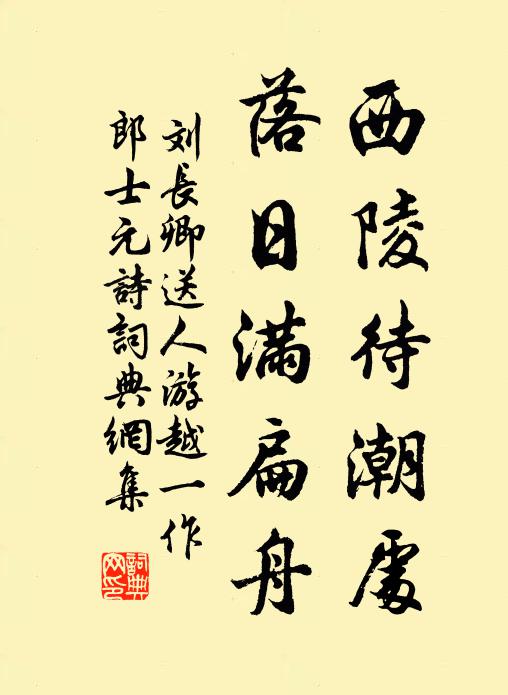 西陵待潮處
落日滿扁舟
刘長卿送人游越一作
郎士元詩詞典網集
詞典網印